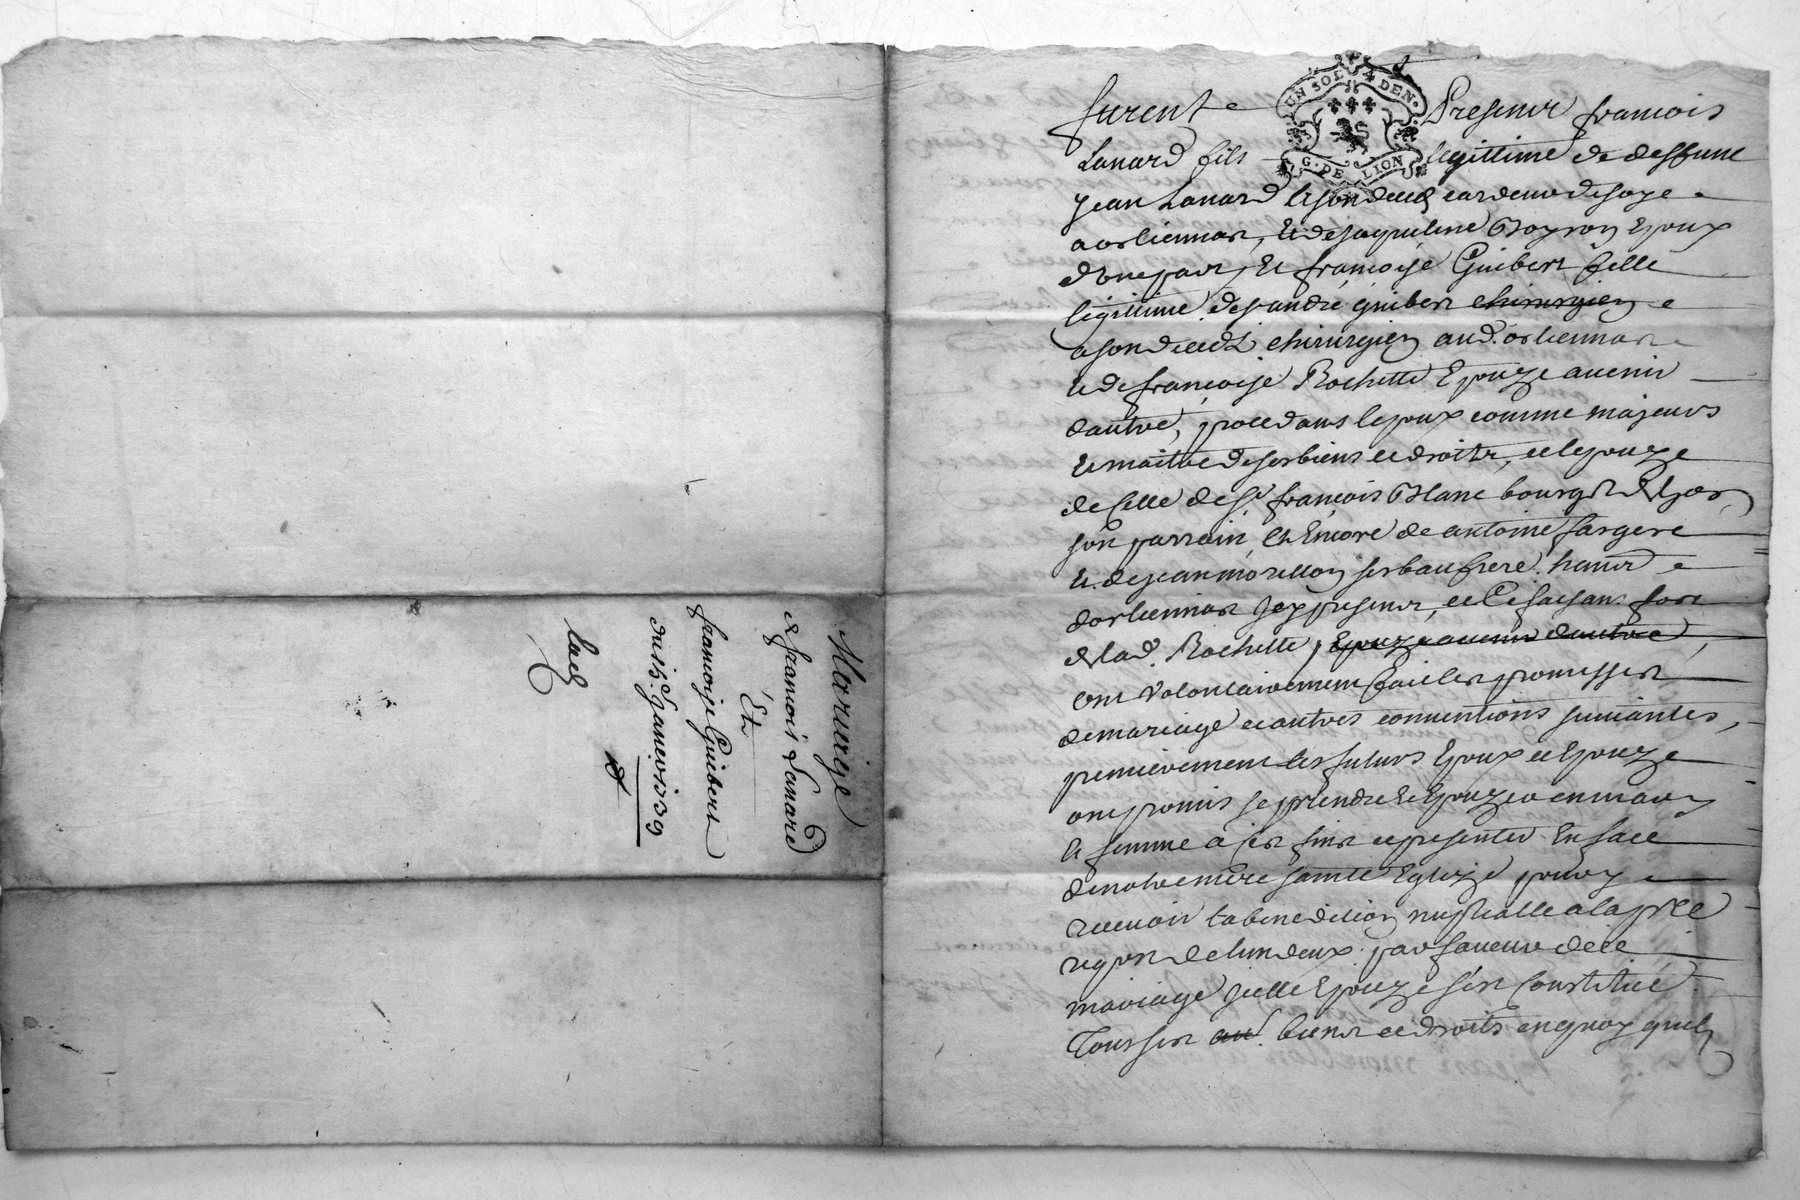 Mariage
de francois Lanard
Et
francoise Guibert
du 15. Janvier 1739
UN SOL 4 DEN.
G. DE LION
furent Presents francois
Lanard fils legittime de deffunt
jean Lanard a son deced
a orliennas, et de jaqueline Boyron Epoux
d'une part, et francoise Guibert fille
legittime de s andré guibert chirurgien
a son deced chirurgien aud. orliennas
et de francoise Rochette Epouze avenir
dautre, procedans lepoux comme majeurs
et maitre de ses biens et droits, et lepouze
de celle de s.r francois Blanc bourg.s de Lyon
son parrain, et Encore de antoine fargere
et de jean morellon ses baufrere
dorliennas icy presents, et se faisant fort
de lad. Rochette, Epouze avenir dautre,
ont volontairement fait les promesses
de mariage et autres conventions suivantes,
premierement les futurs Epoux et Epouze
ont promis se prendre et Epouzer en mary
et femme a ces fins se presenter En face
de notre mere sainte Eglize pour y
recevoir la benediction nuptialle a la p.re
req.on de lun deux par faveur de ce
mariage icelle Epouze s'est Constitué
tous ses au. biens et droits en quoy quils